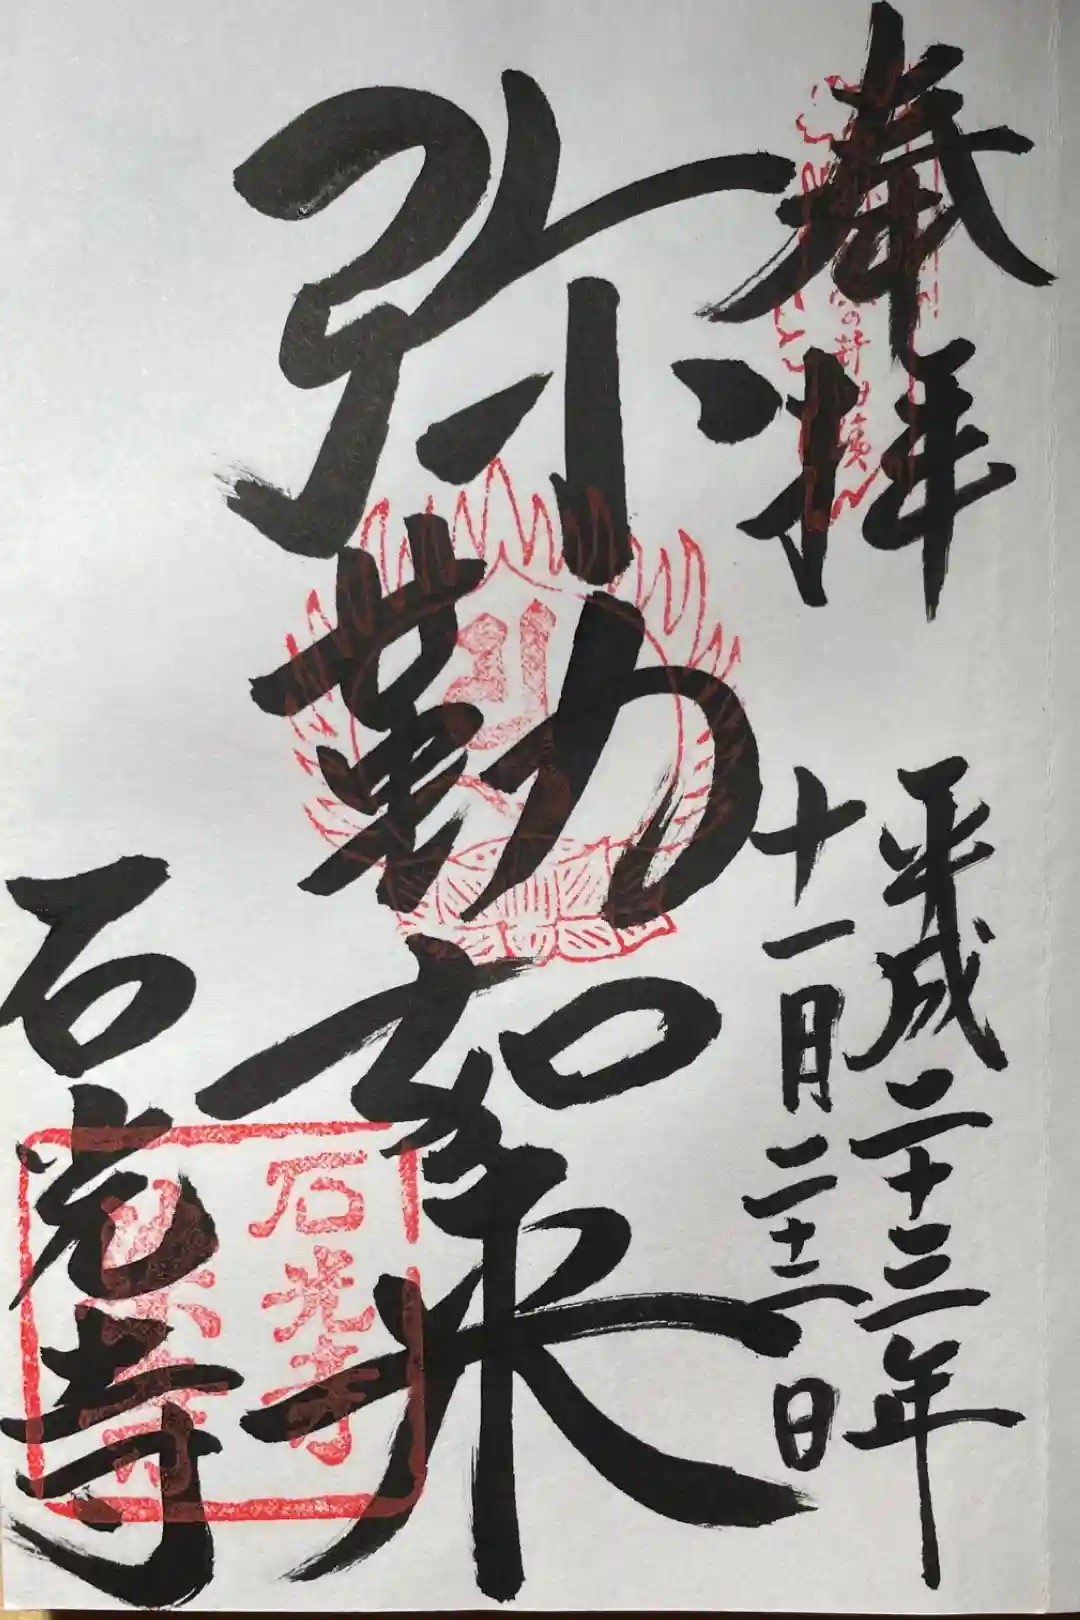 奉拝
平成二十三年
十一月二十二日
弥勒如来
石光寺
石光寺